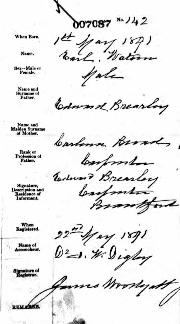 007087 No. 142
When Born.
1st May 1891
Name.
Earl, Watson
Sex—Male or Female.
Male
Name and Surname of Father.
Edward Brearley
Name and Maiden Surname of Mother.
Rank or Profession of Father.
Carpenter
Signature, Description and Residence of Informant.
Edward Brearley
Carpenter
Brantford
When Registered.
22nd May 1891
Name of Accoucheur.
Dr. W. Digby
Signature of Registrar.
James
REMARKS.